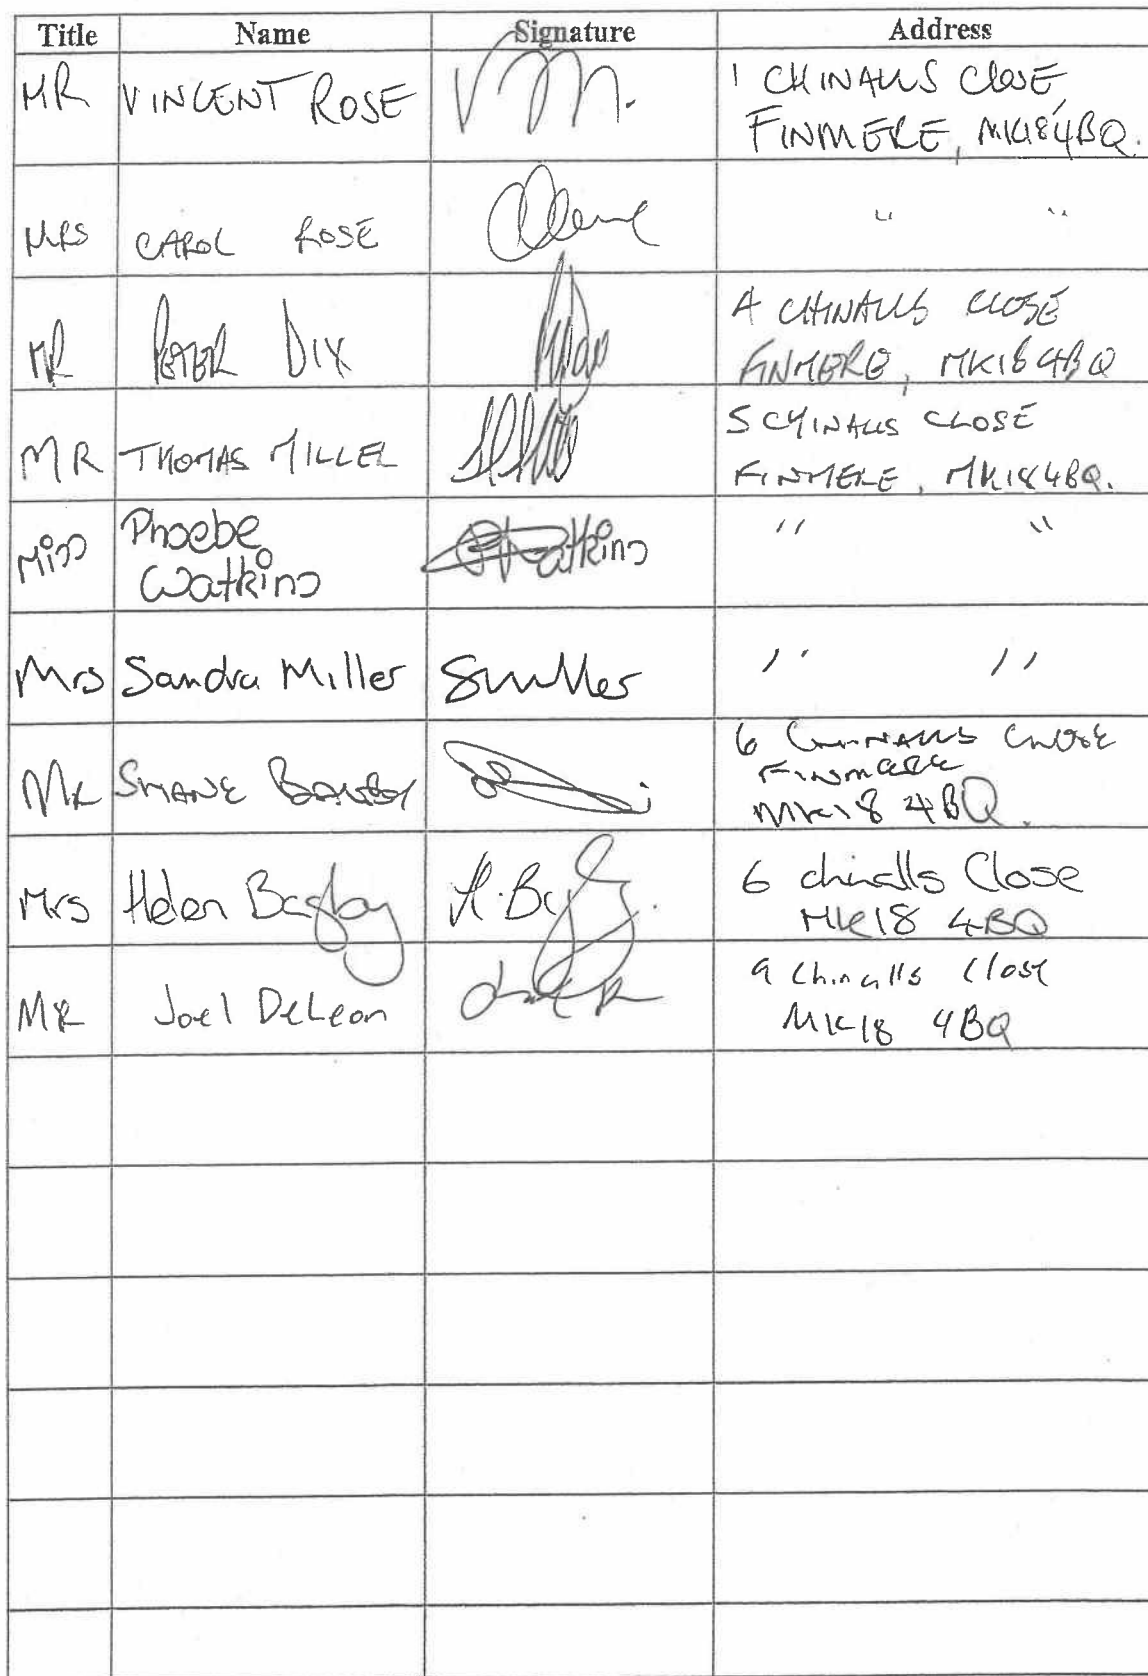 Title Name Signature Address
MR VINCENT ROSE 1 CHINALLS CLOSE,
FINMERE, MK18 4BQ.
MRS CAROL ROSE " "
MR PETER DIX 4 CHINALLS CLOSE
FINMERE, MK18 4BQ
MR THOMAS MILLER 5 CHINALLS CLOSE
FINMERE, MK18 4BQ.
Miss Phoebe
Watkins PWatkins " "
Mrs Sandra Miller SMiller " "
MR SHANE BAGLEY 6 CHINALLS CLOSE
FINMERE
MK18 4BQ.
Mrs Helen Bagley H. Bagley. 6 chinalls Close
MK18 4BQ
MR Joel DeLeon 9 Chinalls Close
MK18 4BQ